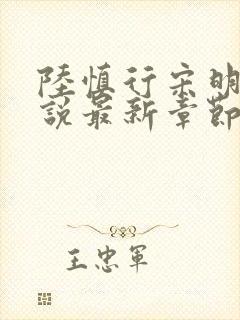 陸慎行宋明
說最新章節
王忠軍